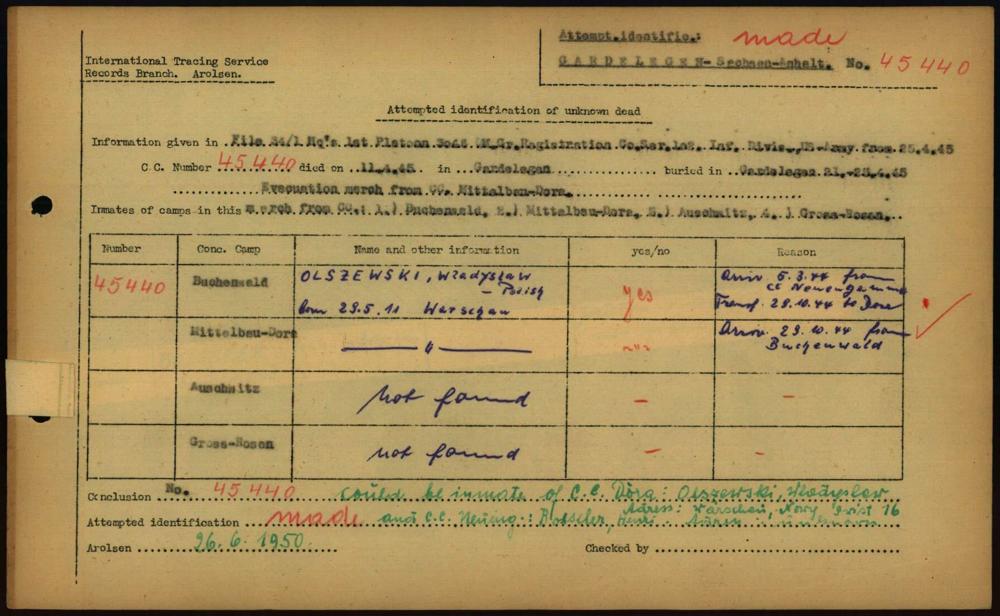 Attempt.identific.: made
GARDELEGEN-Sachsen-Anhalt. No. 45440
International Tracing Service
Records Branch. Arolsen.
Attempted identification of unknown dead
Information given in File 24/1 Hq's 1st Platoon Gr. Registration Co. Inf. Divis., US-Army from 25.4.45
C.C. Number 45440 died on 11.4.45 in Gardelegen buried in Gardelegen 21.-25.4.45
Evacuation march from CC. Mittelbau-Dora.
Inmates of camps in this march from CC.: 1.) Buchenwald, 2.) Mittelbau-Dora, 3.) Auschwitz, 4.) Gross-Rosen.
Number Conc. Camp Name and other information yes/no Reason
45440 Buchenwald OLSZEWSKI, Władysław – Polish born 29.5.11 Warschau yes Arriv. 5.3.44 from CC Neuengamme Transf. 28.10.44 to Dora
Mittelbau-Dora — " — -"- Arriv. 29.10.44 from Buchenwald
Auschwitz not found – –
Gross-Rosen not found – –
Conclusion No. 45440 could be inmate of C.C. Dora: Olszewski, Władysław
Adress: Warschau, Nowy 16
Attempted identification made and C.C. Neueng.: Henri. Adress unknown
Arolsen 26.6.1950. Checked by